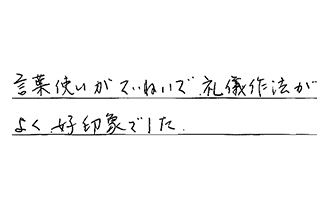 言葉使いがていねいで、礼儀作法が
よく、好印象でした。